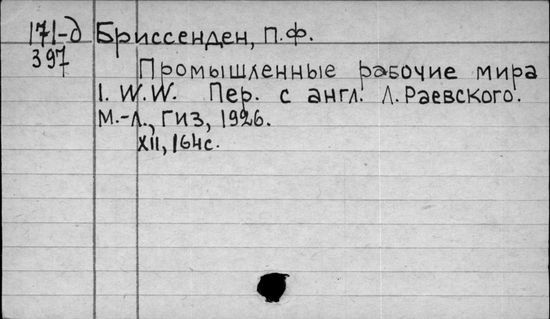 171-д Бриссенден, П.Ф.
397
Промышленные рабочие мира
I. W.W. Пер. с англ. Л. Раевского.
М.-Л., ГИЗ, 1926.
XII, 164с.